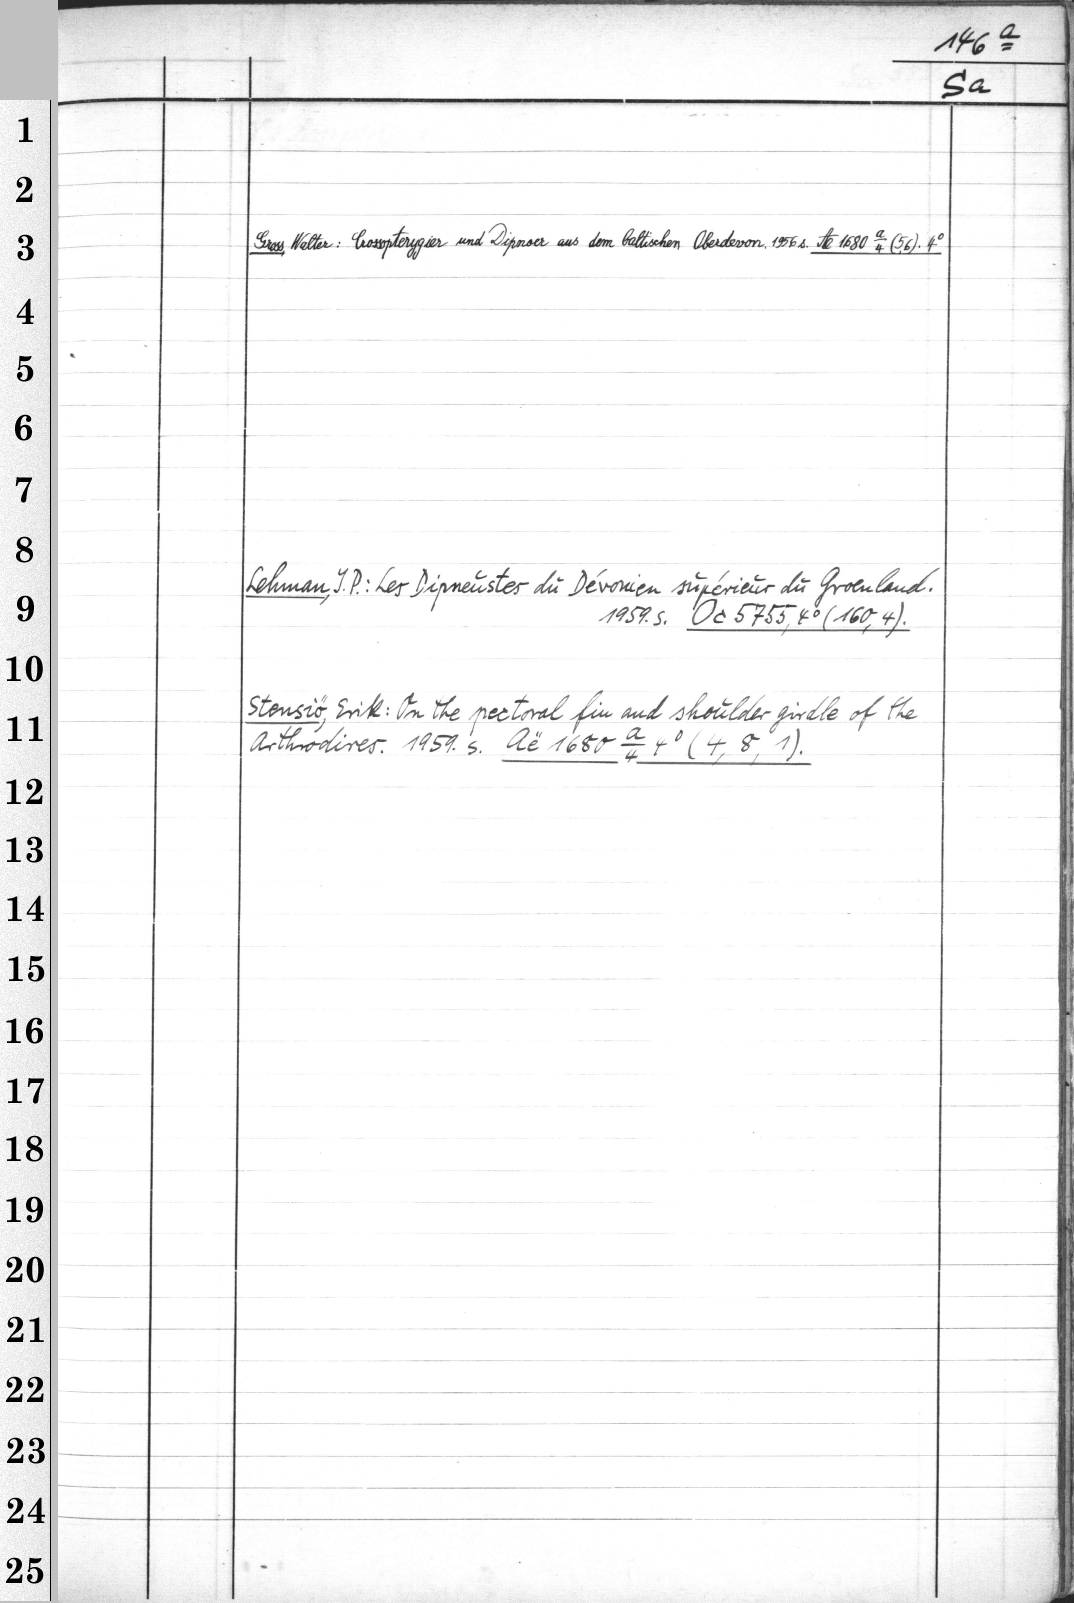 146 a
Sa
1
2
3
Gross, Walter: Crossopterygier und Dipnoer aus dem baltischen Oberdevon. 1956 s. Aë 1680 a/4 (5,6). 4°
4
5
6
7
8
Lehman, J.P.: Les Dipneustes du Dévonien supérieur du Groenland.
9
1959. s. Oc 5755, 4° (160, 4).
10
Stensiö, Erik: On the pectoral fin and shoulder girdle of the
11
Arthrodires. 1959. s. Aë 1680 a/4 4° (4, 8, 1).
12
13
14
15
16
17
18
19
20
21
22
23
24
25